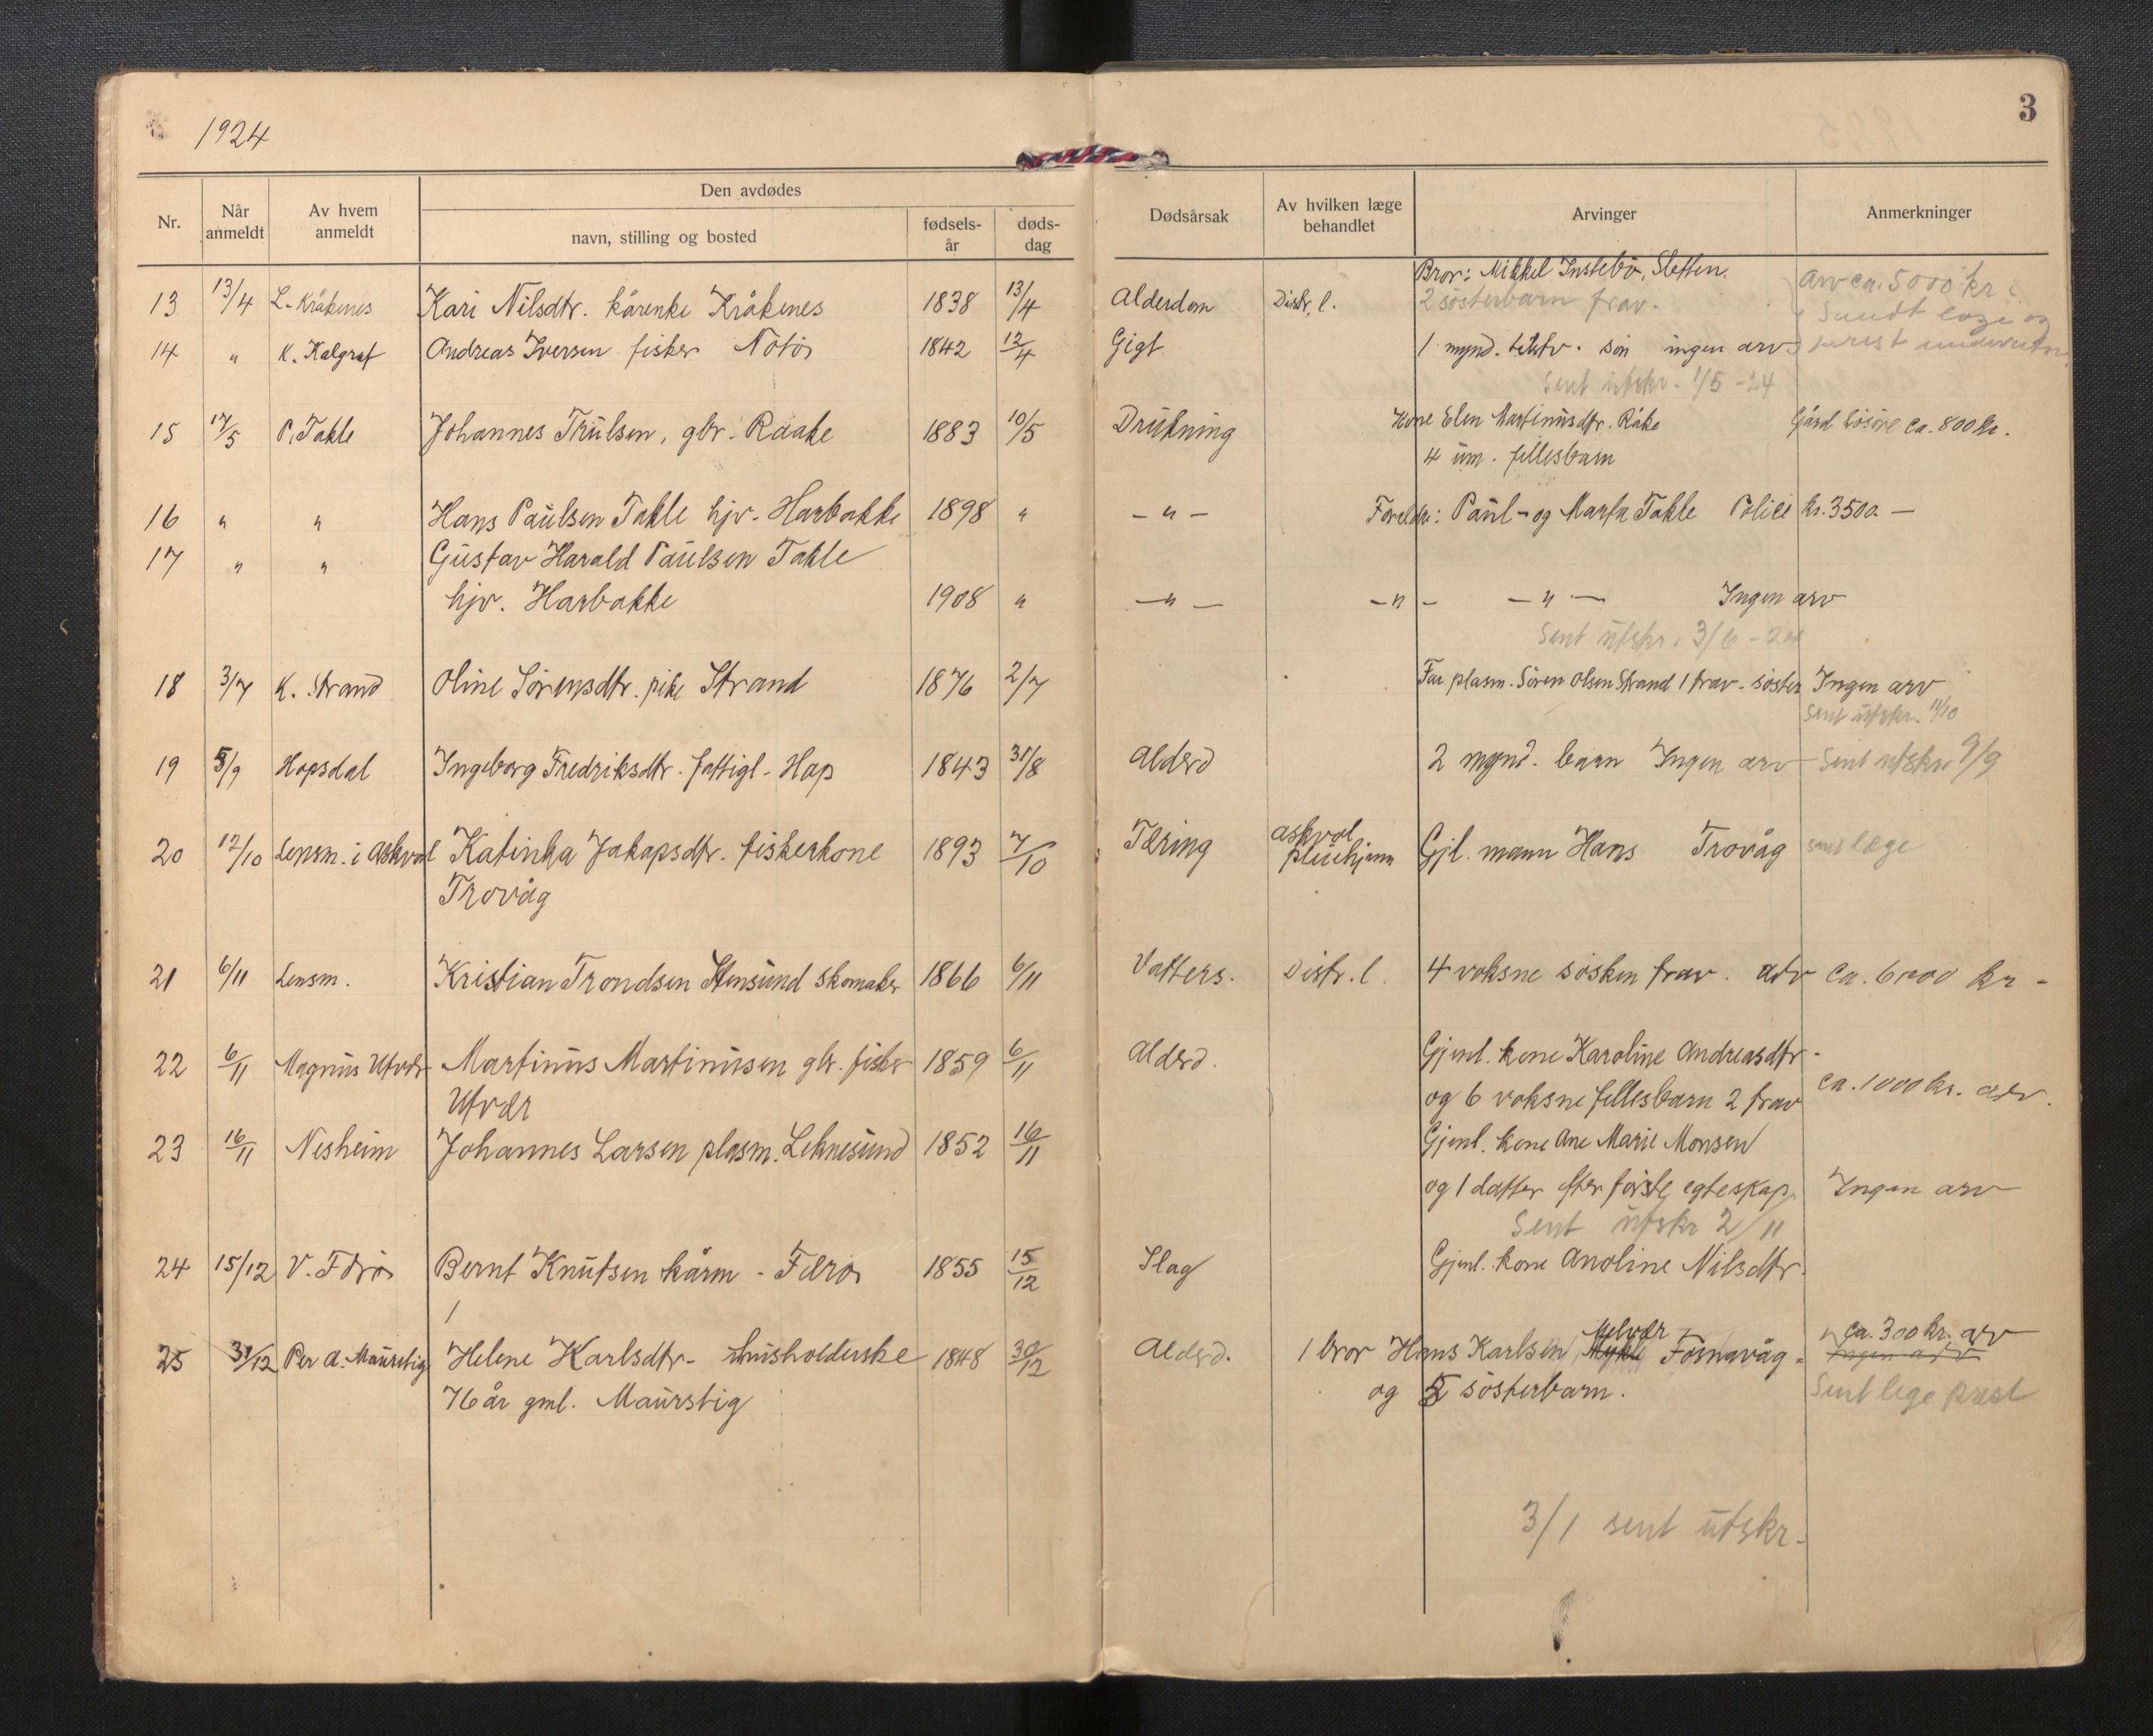 1924
3
Nr.
Når anmeldt
Av hvem anmeldt
Den avdødes
navn, stilling og bosted
fødsels-år
døds-dag
Dødsårsak
Av hvilken læge behandlet
Arvinger
Anmerkninger
13 13/4 L. Kråkenes Kari Nilsdtr. kårenke Kråkenes 1838 13/4 Alderdom Distr. l. Bror: Mikkel Instebö, Sletten. Arv ca. 5000 kr
2 søsterbarn frav. Sendt læge og
14 " K. Kalgraf Andreas Iversen fisker Notö 1842 12/4 Gigt 1 mynd. sön ingen arv prest
Sent utskr. 1/5 - 24
15 17/5 P. Takle Johannes Trulsen, gbr. Raake 1883 10/5 Drukning Kone Elen Martinusdtr. Råke Gård lösöre ca. 800 kr.
4 um. fellesbarn
16 " " Hans Paulsen Takle hjv. Harbakke 1898 " - " - Foreldre: Paul - og Marta Takle Police kr. 3500 -
17 " " Gustav Harald Paulsen Takle
hjv. Harbakke 1908 " - " - - " - - " - Ingen arv
Sent utskr. 3/6 - 24
18 3/7 K. Strand Oline Sörensdtr. pike Strand 1876 2/7 Far plasm. Sören Olsen Strand 1 frav. söster Ingen arv
Sent utskr. 11/10
19 5/9 Hopsdal Ingeborg Fredriksdtr. fattigl. Hop 1843 31/8 Alderd 2 mynd. barn Ingen arv Sent utskr. 9/9
20 17/10 Lensm. i Askvol Katinka Jakopsdtr. fiskerkone 1893 7/10 Tæring Askvol pleiehjem Gjl. mann Hans Trovåg sent læge
Trovåg
21 6/11 Lensm. Kristian Trondsen Stensund skomaker 1866 6/11 Vatters. Distr. l. 4 voksne sösken frav. arv ca. 6000 kr -
22 6/11 Magnus Utvær Martinus Martinusen gbr. fisker 1859 6/11 Alderd. Gjenl. kone Karoline Andreasdtr.
Utvær og 6 voksne fellesbarn 2 frav ca. 1000 kr. arv.
23 16/11 Nesheim Johannes Larsen plasm. Leknesund 1852 16/11 Gjenl. kone Ane Marie Monsen
og 1 datter efter förste egteskap Ingen arv
Sent utskr 2/11
24 15/12 V. Færö Bernt Knutsen kårm - Færö 1855 15/12 Slag Gjenl. kone Anoline Nilsdtr.
25 31/12 Per A. Maurstig Helene Karlsdtr - husholderske 1848 30/12 Alderd. 1 bror Hans Karlsen Mykle Melvær Fosnavåg. ca. 300 kr. arv
Ingen arv
76 år gml. Maurstig og 5 sösterbarn. Sent lege prest
3/1 sent utskr.